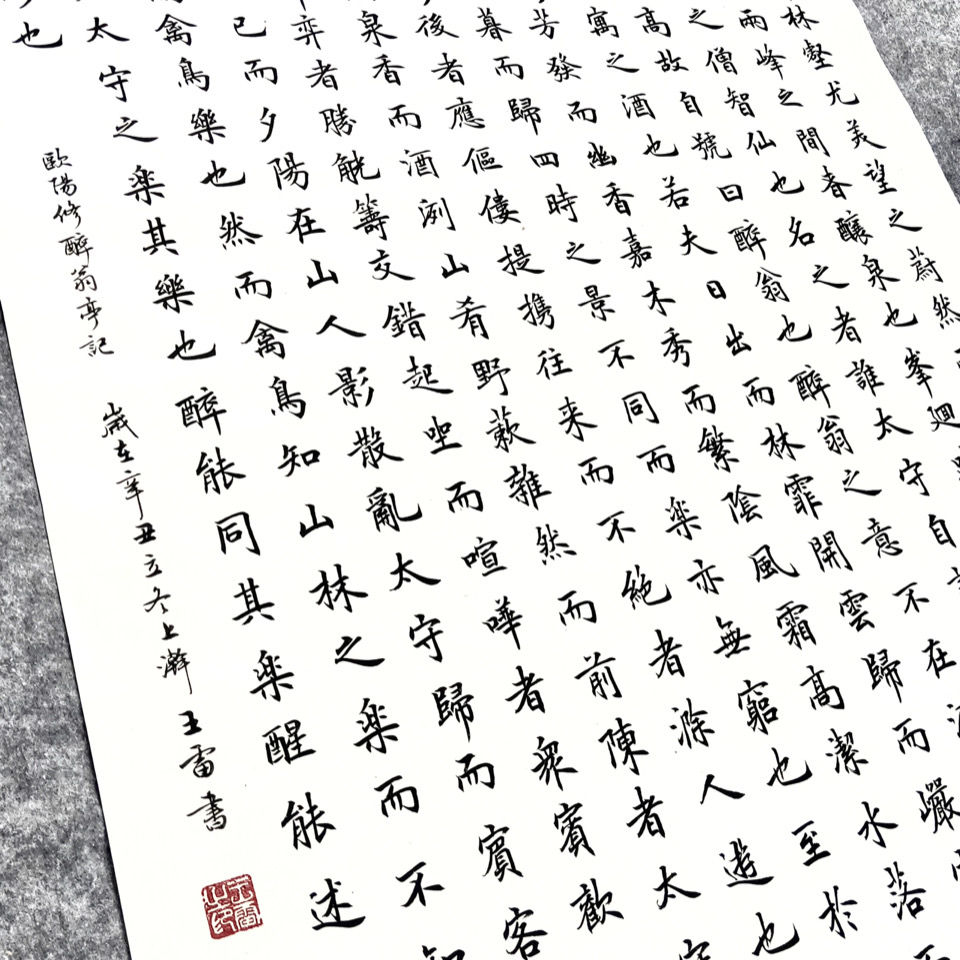 林壑尤美望之蔚然
兩峰之間者釀泉也峯迴
之僧智仙也名之者誰太守自
高故自號曰醉翁也醉翁之意不在酒
寓之酒也若夫日出而林霏開雲歸而巖
芳發而幽香嘉木秀而繁陰風霜高潔水落而
暮而歸四時之景不同而楽亦無窮也至於
後者應傴僂提携往来而不絶者滁人遊也
泉香而酒洌山肴野蔌雜然而前陳者太守
弈者勝觥籌交錯起坐而喧嘩者衆賓歡
已而夕陽在山人影散亂太守歸而賓客
禽鳥樂也然而禽鳥知山林之楽而不知
太守之楽其樂也醉能同其楽醒能述
也
歐陽修醉翁亭記 歲在辛丑立冬上澣王雷書